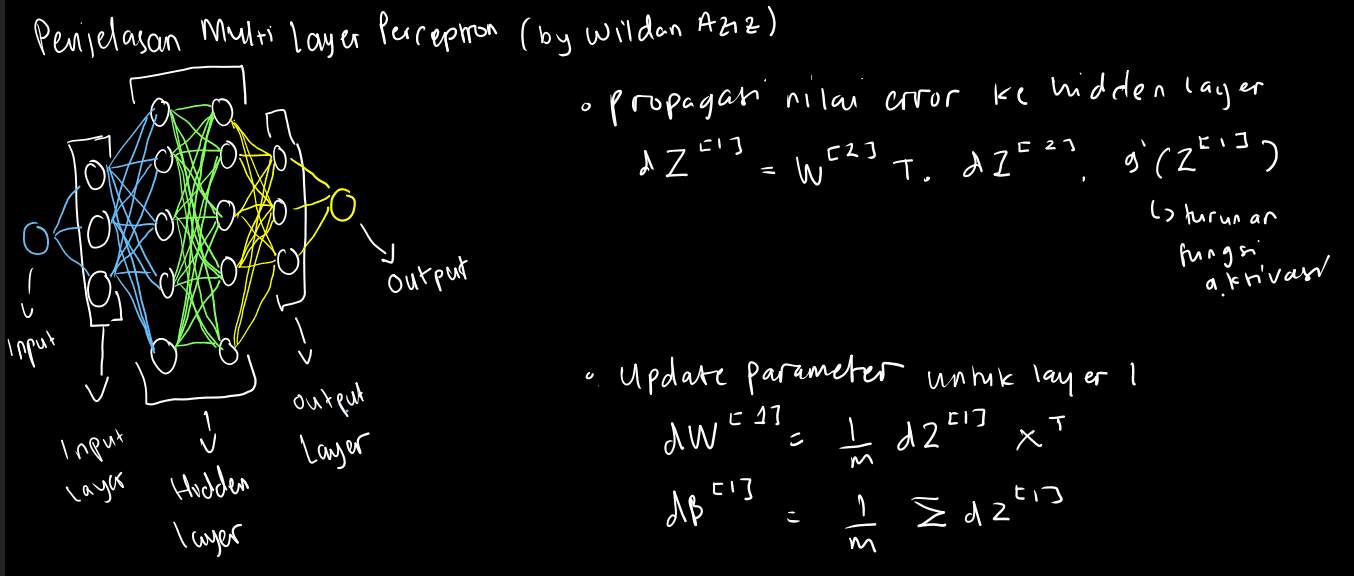 Penjelasan Multi Layer Perceptron (by Wildan Aziz)
Input
Input
Layer
Hidden
layer
Output
Layer
Output
• Propagasi nilai error ke hidden layer
dZ^[1] = W^[2] T . dZ^[2] . g'(Z^[1])
↳ turunan
fungsi
aktivasi
• Update parameter untuk layer 1
dW^[1] = 1/m dZ^[1] X^T
dβ^[1] = 1/m Σ dZ^[1]